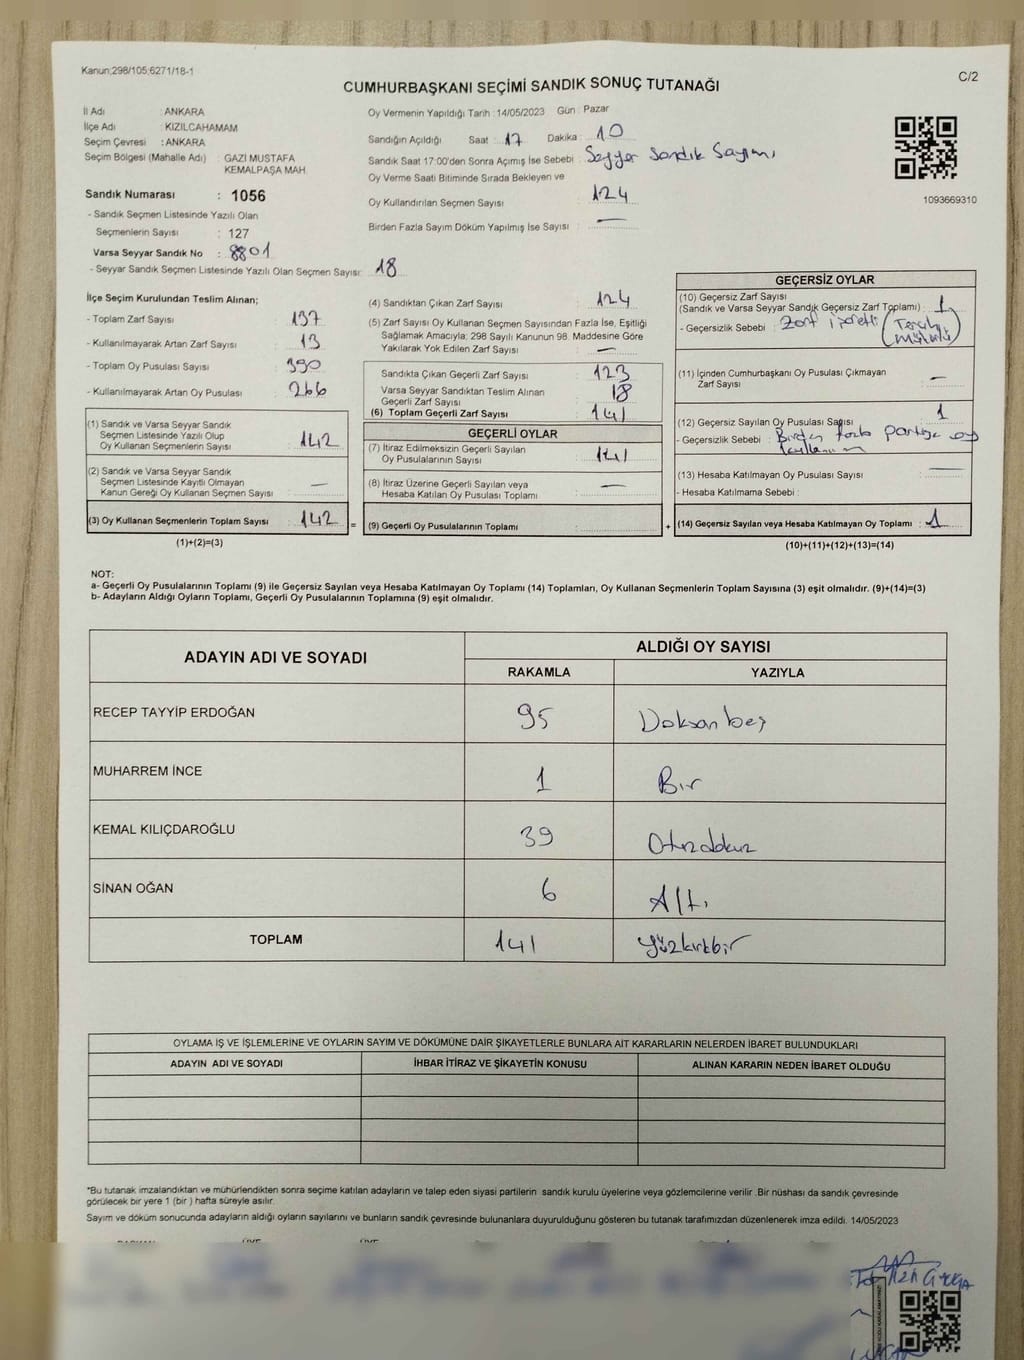 Kanun;298/105;6271/18-1
C/2
CUMHURBAŞKANI SEÇİMİ SANDIK SONUÇ TUTANAĞI
İl Adı : ANKARA
İlçe Adı : KIZILCAHAMAM
Seçim Çevresi : ANKARA
Seçim Bölgesi (Mahalle Adı) : GAZİ MUSTAFA
KEMALPAŞA MAH.
Sandık Numarası : 1056
- Sandık Seçmen Listesinde Yazılı Olan
Seçmenlerin Sayısı : 127
Varsa Seyyar Sandık No : 8801
- Seyyar Sandık Seçmen Listesinde Yazılı Olan Seçmen Sayısı: 18
Oy Vermenin Yapıldığı Tarih :14/05/2023 Gün : Pazar
Sandığın Açıldığı Saat : 17 Dakika : 10
Sandık Saat 17:00'den Sonra Açımış İse Sebebi : Seyyar Sandık Sayımı
Oy Verme Saati Bitiminde Sırada Bekleyen ve
Oy Kullandırılan Seçmen Sayısı : 124
Birden Fazla Sayım Döküm Yapılmış İse Sayısı : —
1093669310
İlçe Seçim Kurulundan Teslim Alınan;
- Toplam Zarf Sayısı : 137
- Kullanılmayarak Artan Zarf Sayısı : 13
- Toplam Oy Pusulası Sayısı : 390
- Kullanılmayarak Artan Oy Pusulası : 266
(1) Sandık ve Varsa Seyyar Sandık
Seçmen Listesinde Yazılı Olup
Oy Kullanan Seçmenlerin Sayısı : 142
(2) Sandık ve Varsa Seyyar Sandık
Seçmen Listesinde Kayıtlı Olmayan
Kanun Gereği Oy Kullanan Seçmen Sayısı : —
(3) Oy Kullanan Seçmenlerin Toplam Sayısı : 142 =
(1)+(2)=(3)
(4) Sandıktan Çıkan Zarf Sayısı : 124
(5) Zarf Sayısı Oy Kullanan Seçmen Sayısından Fazla İse, Eşitliği
Sağlamak Amacıyla; 298 Sayılı Kanunun 98. Maddesine Göre
Yakılarak Yok Edilen Zarf Sayısı : —
Sandıkta Çıkan Geçerli Zarf Sayısı : 123
Varsa Seyyar Sandıktan Teslim Alınan
Geçerli Zarf Sayısı : 18
(6) Toplam Geçerli Zarf Sayısı : 141
GEÇERLİ OYLAR
(7) İtiraz Edilmeksizin Geçerli Sayılan
Oy Pusulalarının Sayısı : 141
(8) İtiraz Üzerine Geçerli Sayılan veya
Hesaba Katılan Oy Pusulası Toplamı : —
(9) Geçerli Oy Pusulalarının Toplamı : +
GEÇERSİZ OYLAR
(10) Geçersiz Zarf Sayısı
(Sandık ve Varsa Seyyar Sandık Geçersiz Zarf Toplamı) : 1
- Geçersizlik Sebebi : Zarf işaretli (Tercih mühürlü)
(11) İçinden Cumhurbaşkanı Oy Pusulası Çıkmayan
Zarf Sayısı : —
(12) Geçersiz Sayılan Oy Pusulası Sayısı : 1
- Geçersizlik Sebebi : Birden fazla partiye oy
(13) Hesaba Katılmayan Oy Pusulası Sayısı : —
- Hesaba Katılmama Sebebi :
(14) Geçersiz Sayılan veya Hesaba Katılmayan Oy Toplamı : 1
(10)+(11)+(12)+(13)=(14)
NOT:
a- Geçerli Oy Pusulalarının Toplamı (9) ile Geçersiz Sayılan veya Hesaba Katılmayan Oy Toplamı (14) Toplamları, Oy Kullanan Seçmenlerin Toplam Sayısına (3) eşit olmalıdır. (9)+(14)=(3)
b- Adayların Aldığı Oyların Toplamı, Geçerli Oy Pusulalarının Toplamına (9) eşit olmalıdır.
ADAYIN ADI VE SOYADI
ALDIĞI OY SAYISI
RAKAMLA YAZIYLA
RECEP TAYYİP ERDOĞAN 95 Doksanbeş
MUHARREM İNCE 1 Bir
KEMAL KILIÇDAROĞLU 39 Otuzdokuz
SİNAN OĞAN 6 Altı
TOPLAM 141 Yüzkırkbir
OYLAMA İŞ VE İŞLEMLERİNE VE OYLARIN SAYIM VE DÖKÜMÜNE DAİR ŞİKAYETLERLE BUNLARA AİT KARARLARIN NELERDEN İBARET BULUNDUKLARI
ADAYIN ADI VE SOYADI İHBAR İTİRAZ VE ŞİKAYETİN KONUSU ALINAN KARARIN NEDEN İBARET OLDUĞU
*Bu tutanak imzalandıktan ve mühürlendikten sonra seçime katılan adayların ve talep eden siyasi partilerin sandık kurulu üyelerine veya gözlemcilerine verilir .Bir nüshası da sandık çevresinde
görülecek bir yere 1 (bir ) hafta süreyle asılır.
Sayım ve döküm sonucunda adayların aldığı oyların sayılarını ve bunların sandık çevresinde bulunanlara duyurulduğunu gösteren bu tutanak tarafımızdan düzenlenerek imza edildi. 14/05/2023